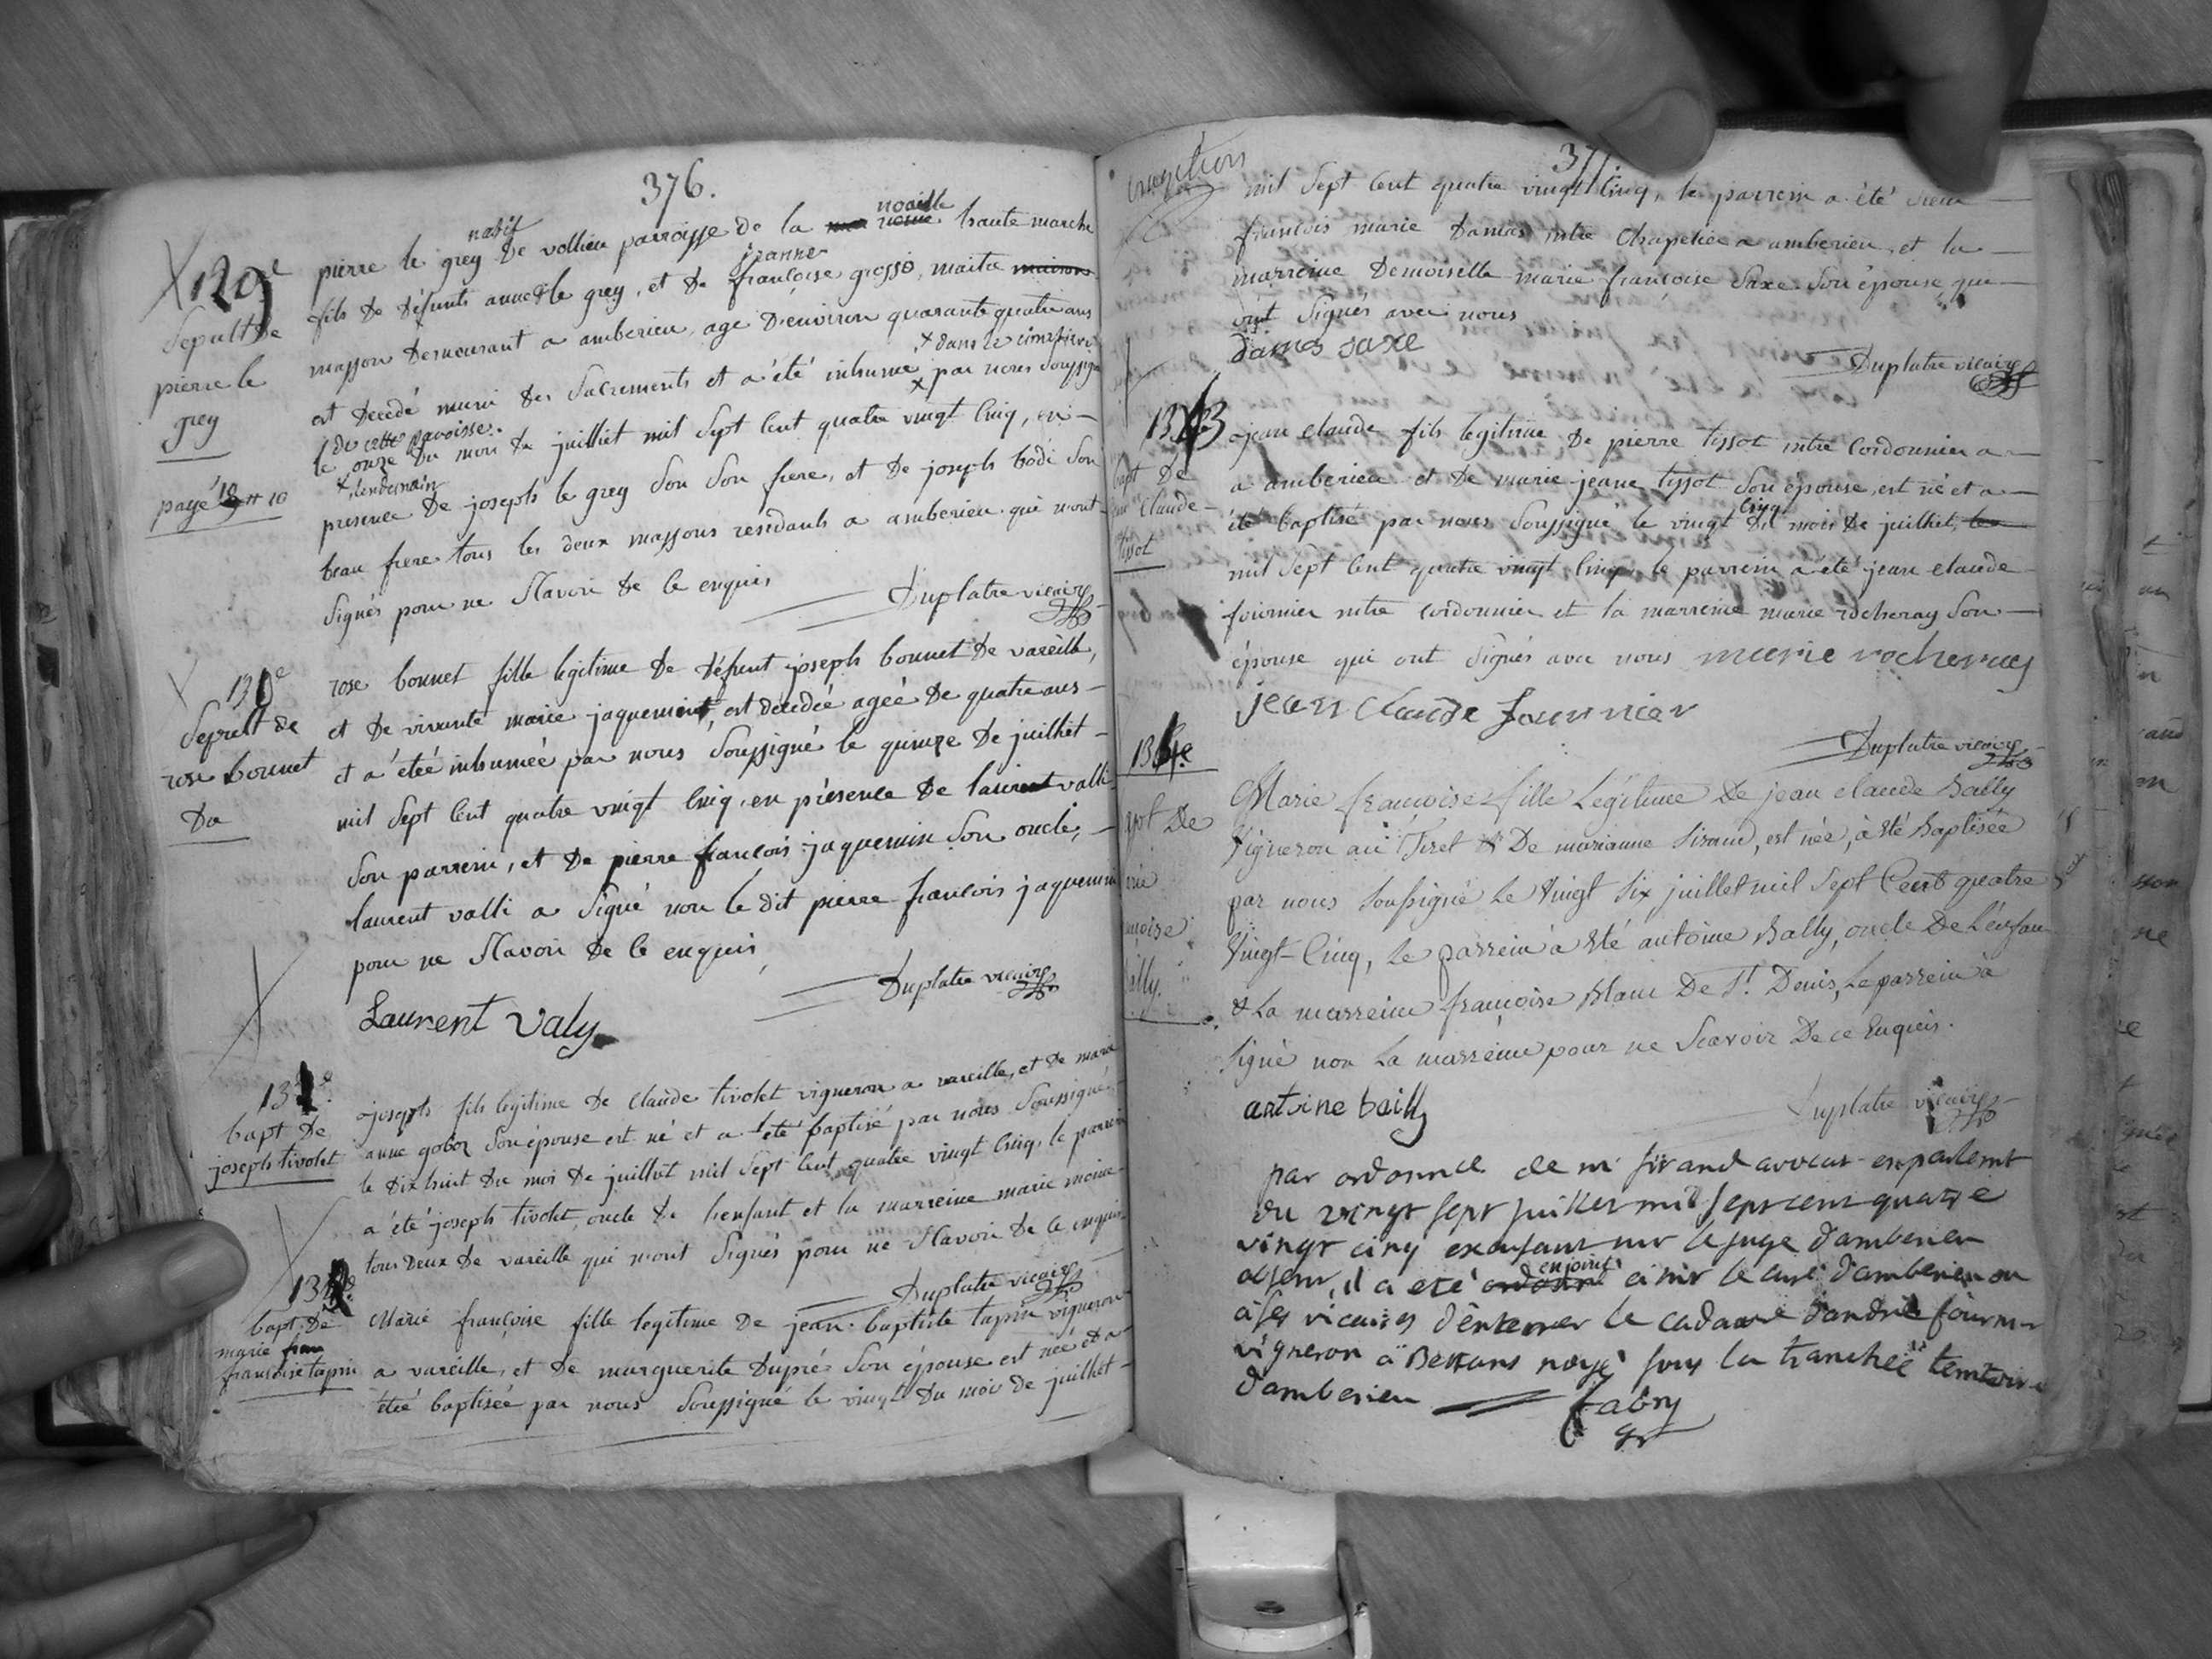 376.
129e
Sepult De
pierre le
grey
payé 10 # 10
pierre le grey natif De vollieu parroisse de la noaille haute marche
fils De Défunts annet le grey, et De jeanne françoise grosso, maitre
masson Demeurant a amberieu, age D'environ quarante quatre ans
est Decedé muni Des Sacrements et a été inhumé x dans le cimetiere par nous Soussigné
de cette paroisse.
le onze Du mois De juilliet mil Sept Cent quatre vingt Cinq, en
x lendemain
presence De joseph le grey Son Son frere, et De joseph bodi Son
beau frere tous les deux massons residants a amberieu qui n'ont
Signés pour ne Sçavoir De ce enquis
Duplatre vicaire
130e
Sepult de
rose bonnet
Da
rose bonnet fille legitime De Défunt joseph bonnet De vareille,
et De vivante marie jaquemint, est décédée agée De quatre ans
et a étéé inhumée par nous Soussigné le quinze De juilliet
mil Sept Cent quatre vingt Cinq, en présence De laurent valli
Son parrein, et De pierre françois jaquemin Son oncle,
laurent valli a Signé non le Dit pierre françois jaquemin
pour ne Sçavoir De ce enquis
Duplatre vicaire
Laurent Valy
131e
bapt De
joseph tivolet
joseph fils legitime De Claude tivolet vigneron a vareille, et De marie
anne goboz Son épouse est né et a été baptisé par nous Soussigné
le Dix huit Du moi De juilliet mil Sept Cent quatre vingt Cinq, le parrein
a été joseph tivolet, oncle De l'enfant et la marreine marie moine
tous Deux De vareille qui n'ont Signés pour ne Sçavoir De ce enquis
Duplatre vicaire
132e
bapt. De
marie fran
françoise tapin
Marie françoise fille legitime De jean baptiste tapin vigneron
a vareille, et De marguerite Dupré Son épouse est née et a
étéé baptisée par nous Soussigné le vingt Du moi De juilliet
377.
mil Sept Cent quatre vingt Cinq, le parrein a été Sieur
francois marie Damas mtre Chapelier a amberieu, et la
marreine Demoiselle marie françoise Saxe Son épouse qui
ont Signés avec nous
Damas saxe
Duplatre vicaire
133
bapt De
jean Claude
tissot
jean Claude fils legitime De pierre tissot mtre Cordonnier a
a amberieu et De marie jeane tissot Son épouse, est né et a
été baptisé par nous Soussigné le vingt Cinq Du mois De juilliet,
mil Sept Cent quatre vingt Cinq, le parrein a été jean claude
fournier mtre cordonnier et la marreine marie rocheray Son
épouse qui ont Signés avec nous marie rocheray
jean Claude fournier
Duplatre vicaire
134e
bapt De
Marie françoise fille Légitime De jean claude Bailly
Vigneron au Tiret & De marianne Sirand, est née, à été Baptisée
par nous Soussigné Le Vingt Six juillet mil Sept Cent quatre
Vingt-Cinq, Le parrein à été antoine Bally, oncle De L'enfan
& La marreine françoise Blanc De St. Denis, Le parrein à
Signé non La marreine pour ne Scavoir De ce Enquis.
antoine bailly
Duplatre vicaire
par ordonnce de mr sirand avocat en parlemt
du vingt sept juillet mil sept cent quatre
vingt cinq exerçant mr le juge d'amberieu
absent, il a été enjoint à mr le curé d'amberieu ou
à ses vicaires d'enterrer le cadavre d'andré fournier
vigneron à Bettans noyé sous la tranchée territoire
d'amberieu
fabry